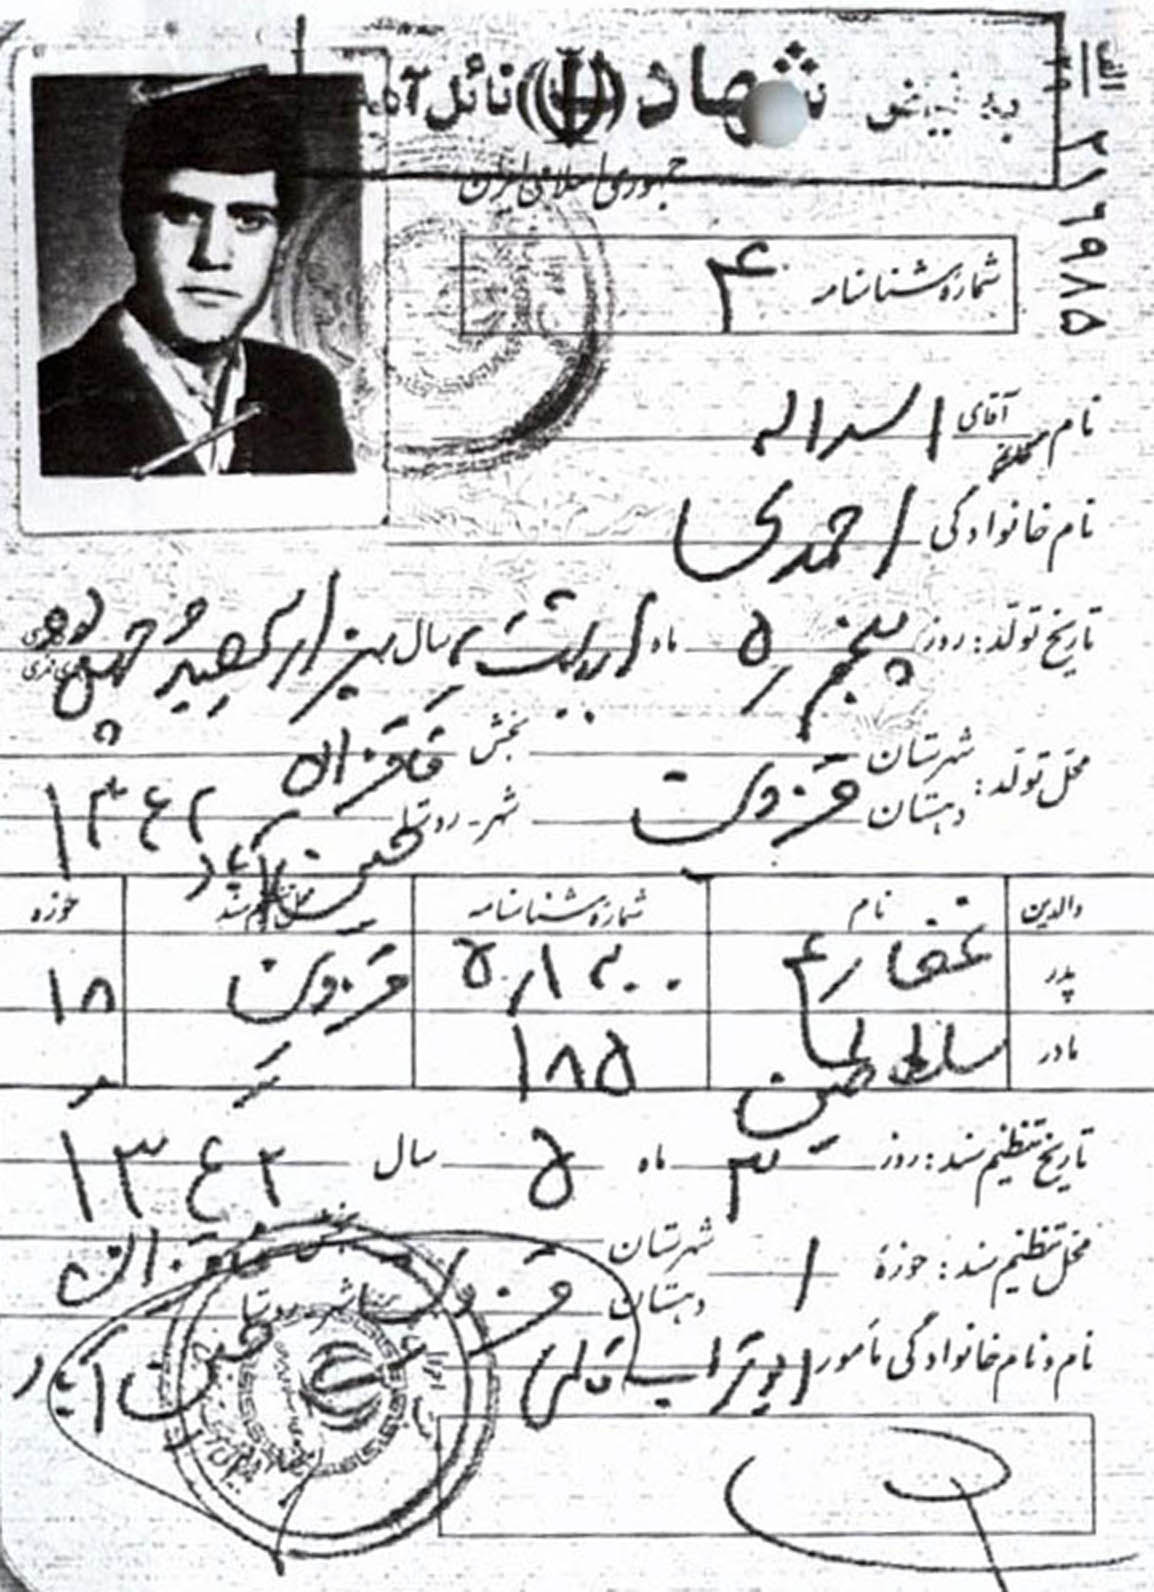 به فیض شهادت نائل آمد
جمهوری اسلامی ایران
الف ۲۱۶۹۸۵
شماره شناسنامه ۴
نام آقای اسداله
نام خانوادگی احمدی
تاریخ تولد: روز پنجم ۵ ماه اردیبهشت سال هزار و سیصد و چهل و دو
محل تولد: شهرستان قزوین بخش قاقزان
دهستان شهر-روستا حسین آباد ۱۳۴۲
والدین نام شماره شناسنامه محل تنظیم سند حوزه
پدر غفار قزوین ۱۸
مادر سلطان ۱۸۵
تاریخ تنظیم سند: روز ۳ ماه ۵ سال ۱۳۴۲
محل تنظیم سند: حوزه ۱ شهرستان قزوین بخش قاقزان
دهستان شهر-روستا حسین آباد
نام و نام خانوادگی مأمور ابوتراب